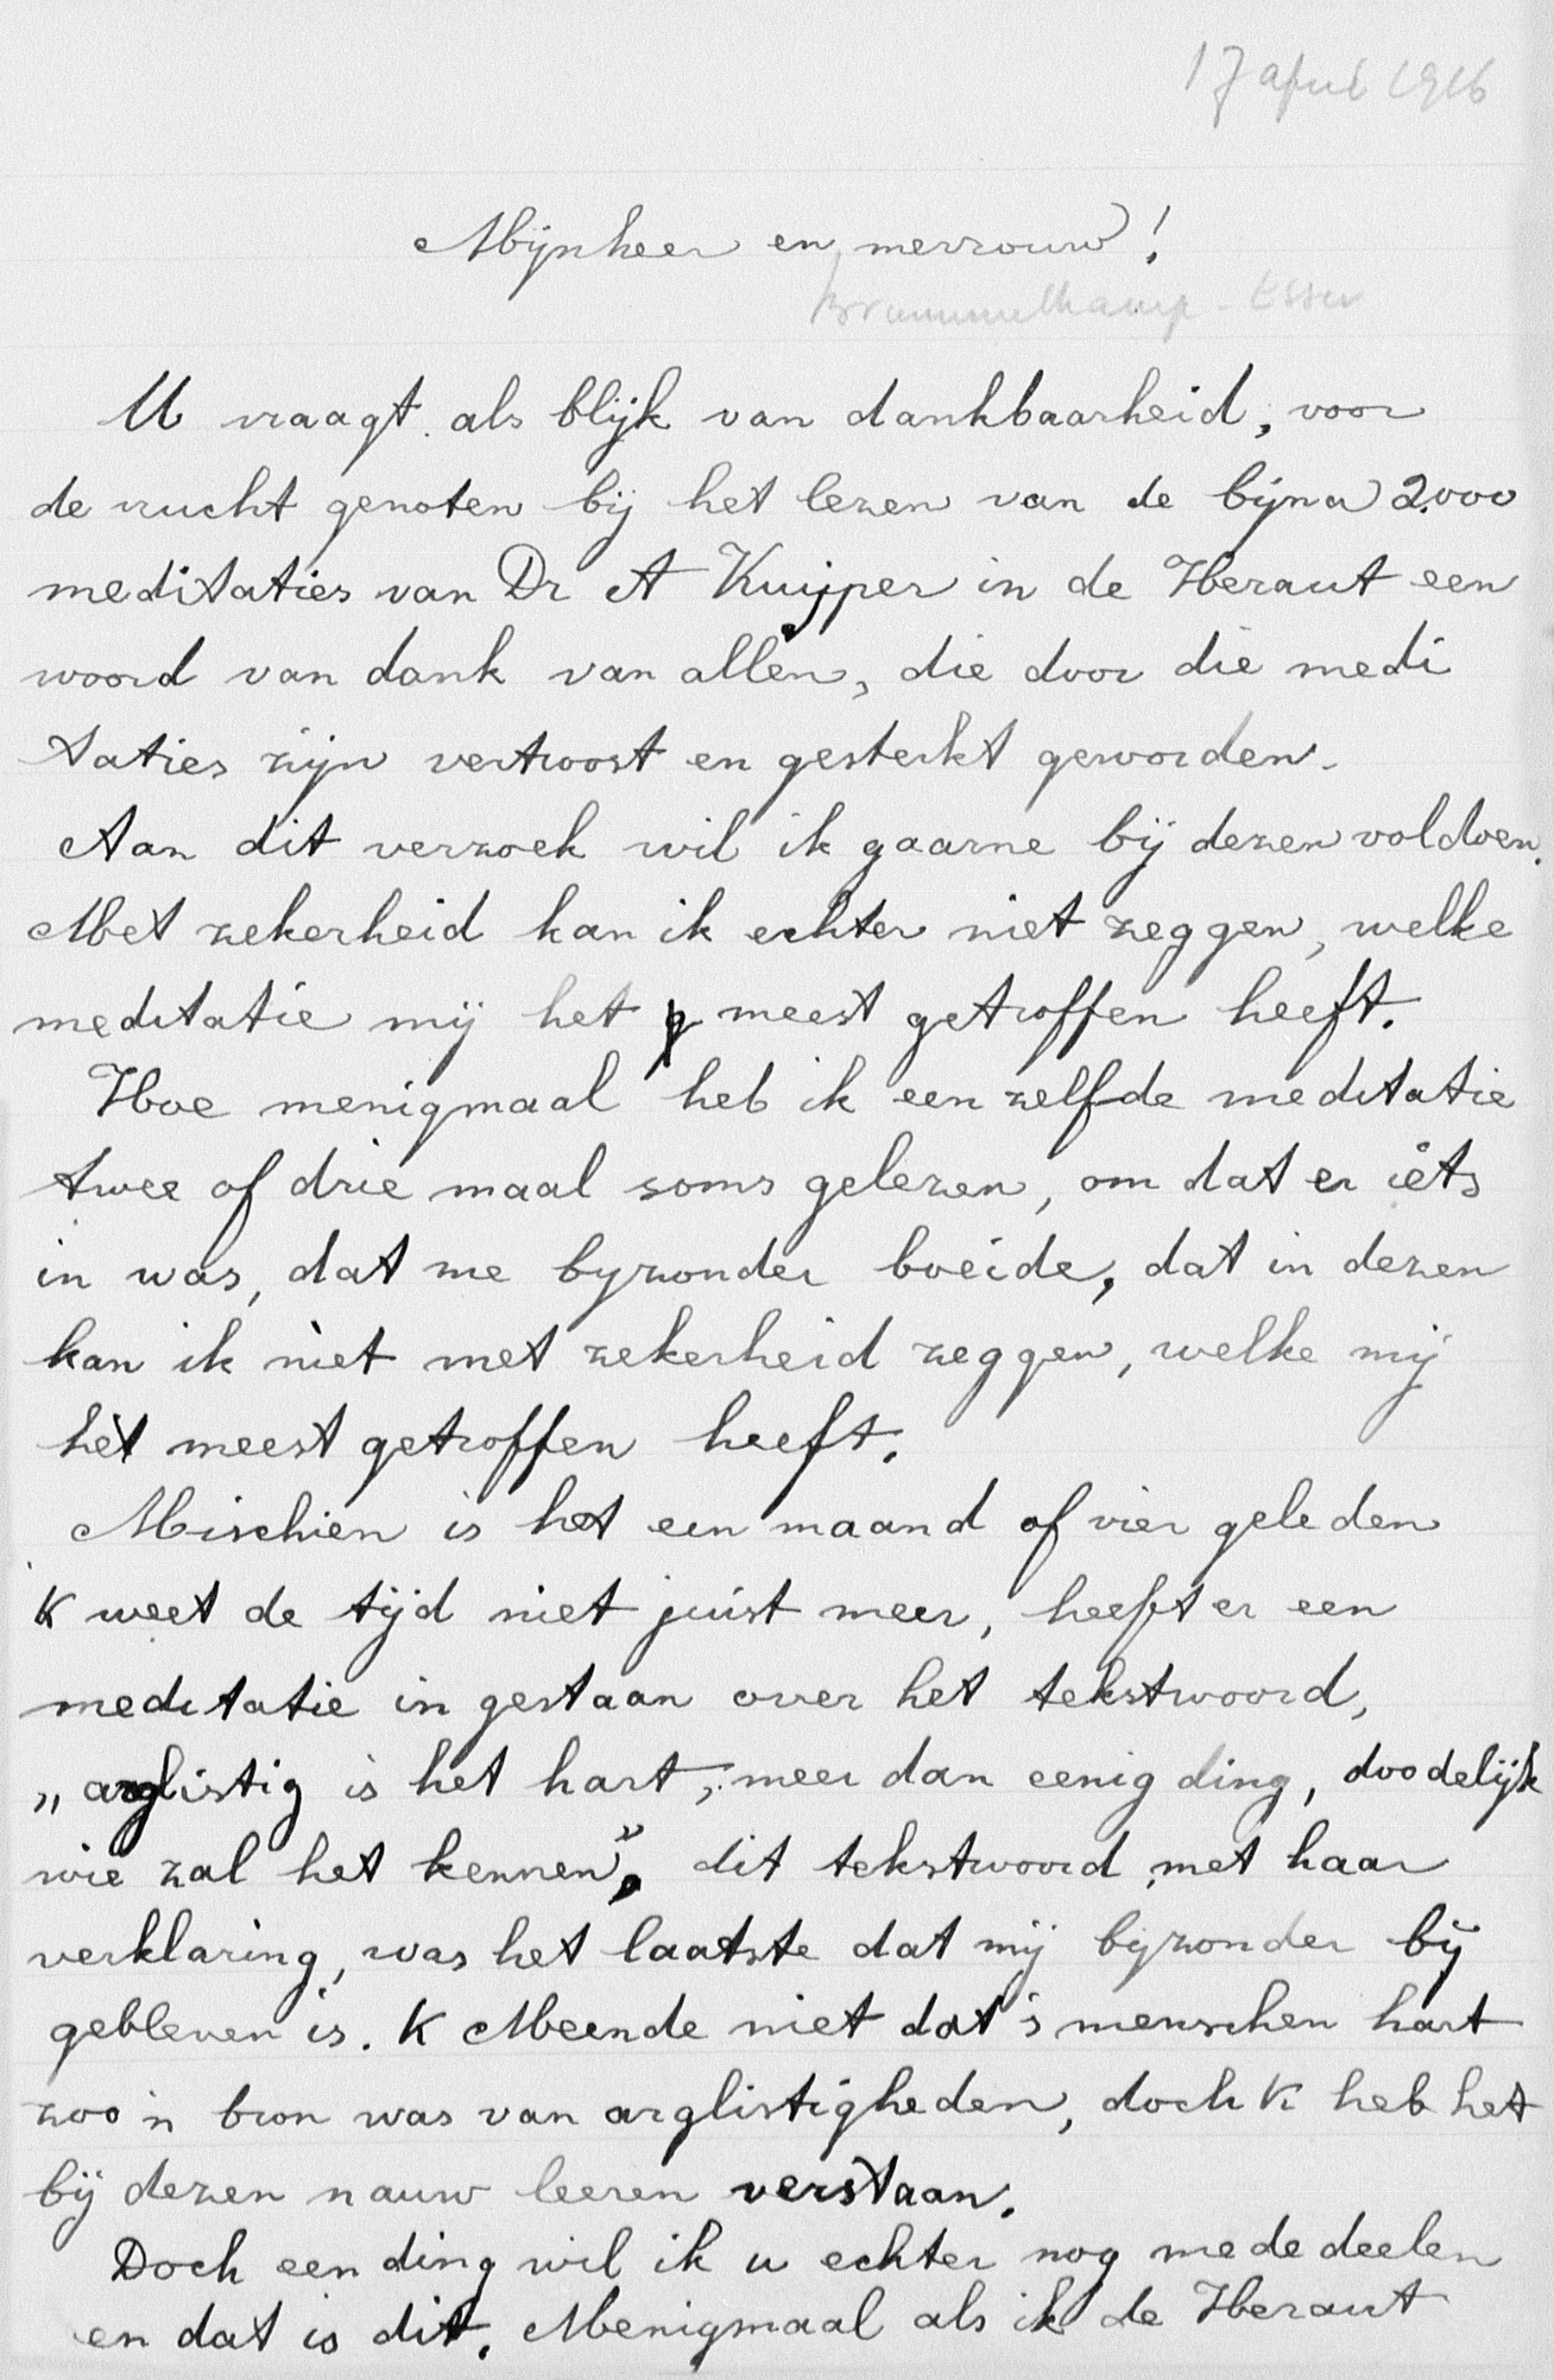 17 april 1916
Mijnheer en mevrouw!
Brummelkamp - Esser
U vraagt als blijk van dankbaarheid, voor
de vrucht genoten bij het lezen van de bijna 2.000
meditaties van Dr A Kuijper in de Heraut een
woord van dank van allen, die door die medi
taties zijn vertroost en gesterkt geworden.
Aan dit verzoek wil ik gaarne bij dezen voldoen.
Met zekerheid kan ik echter niet zeggen, welke
meditatie mij het meest getroffen heeft.
Hoe menigmaal heb ik een zelfde meditatie
twee of drie maal soms gelezen, om dat er iets
in was, dat me byzonder boeide, dat in dezen
kan ik niet met zekerheid zeggen, welke mij
het meest getroffen heeft.
Mischien is het een maand of vier geleden
'k weet de tijd niet juist meer, heeft er een
meditatie in gestaan over het tekstwoord,
„arglistig is het hart, meer dan eenig ding, doodelijk
wie zal het kennen", dit tekstwoord met haar
verklaring, was het laatste dat mij bijzonder bij
gebleven is. K Meende niet dat 's menschen hart
zoo'n bron was van arglistigheden, doch K heb het
bij dezen nauw leeren verstaan.
Doch een ding wil ik u echter nog mede deelen
en dat is dit. Menigmaal als ik de Heraut